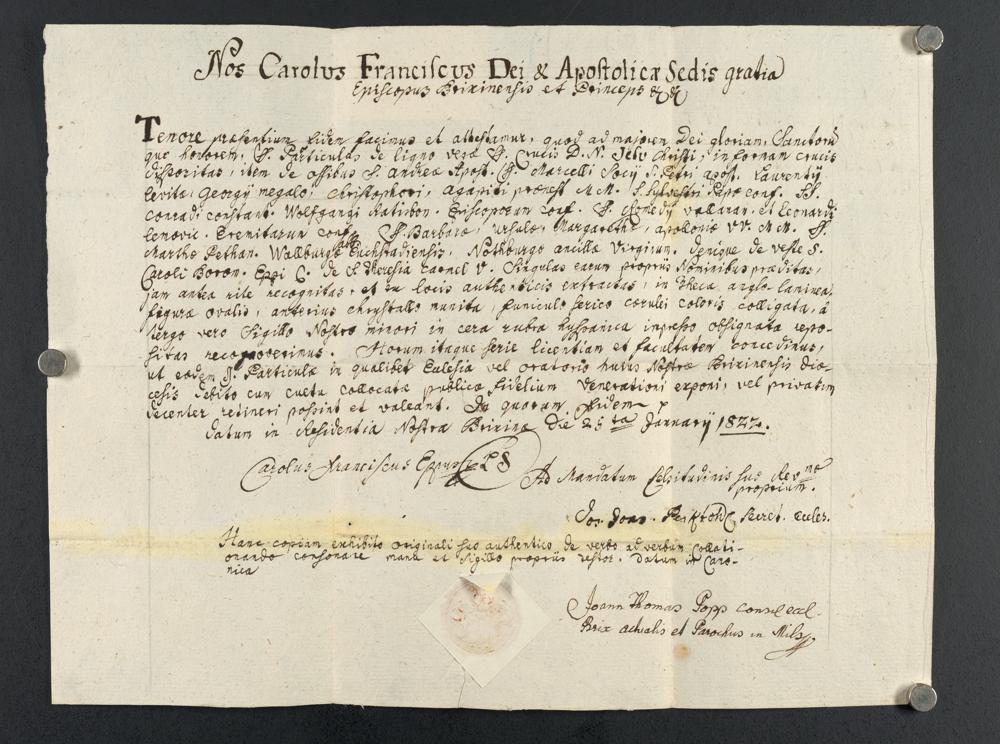 Nos Carolus Franciscus Dei & Apostolicæ Sedis gratia
Episcopus Brixinensis et Princeps &c &c
Tenore præsentium fidem facimus et attestamur, quod ad majorem Dei gloriam, Sanctorum
que honorem, S. Particulas de ligno veræ S. Crucis D. N. Jesu Christi, in formam crucis
dispositas, item de ossibus S. Andreæ Apost. S. Marcelli Socy S. Petri apost. Laurentij
levitæ, Georgy megalo, Christophori, Agapiti prænest M M. S. Sylvestri Papæ conf. SS.
conradi constant. Wolfgangi Ratisbon. Episcoporum conf. S. Romedij et Leonardi
lemovic. Eremitarum conf. S. Barbaræ, Ursulæ, Margarethæ, apoloniæ VV. M M. S.
Marthæ Bethan. Walburgæ Abb. Euchstadiensis, Nothburgæ ancillæ Virginum. Denique de veste S.
Caroli Borom. Eppi C. de S. Theresia Carmel V. Singulas earum proprijs Nominibus præditas,
jam antea rite recognitas, et ex locis authenticis extractas, in theca anglo laminea,
figuræ ovalis, anterius chrystallo munita, funiculo serico cærulei coloris colligata, à
tergo vero Sigillo Nostro minori in cera rubra hyspanica impresso obsignata repo-
sitas recognoverimus. Horum itaque serie licentiam et facultatem concedimus,
ut eædem S. Particulæ in qualibet Eulesia vel oratorio huius Nostræ Brixinensis diæ-
cesis debito cum cultu collocatæ publicæ fidelium Venerationi exponi, vel privatim
decenter retineri possint et valeant. In quorum fidem p
Datum in Residentia Nostra Brixinæ Die 25 ta January
Carolus Franciscus Eppus LS Ad Mandatum Celsitudinis suæ Rev mæ
proprium.
Jos. Joan. Secret. eccles.
Hanc copiam exhibito originali suo authentico de verbo ad verbum Collati-
onando consonare manu et Sigillo proprijs testor. Datum in Cano-
nica
Joann Thomas Popp Consil eccl
Brix actualis et Parochus in Mils